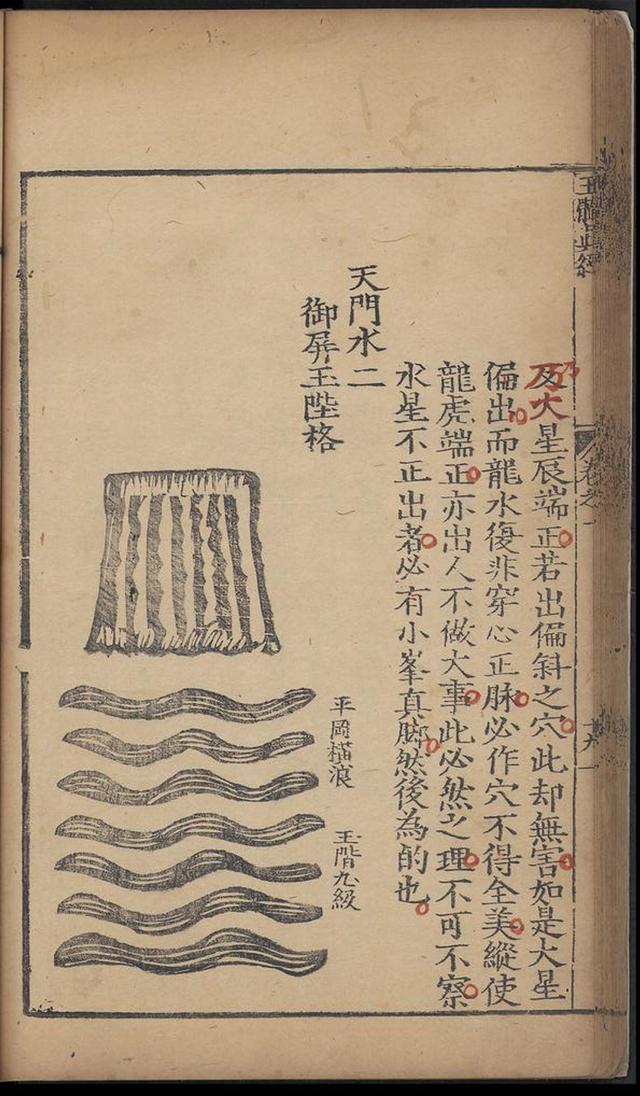 玉髓真經
卷之一
乃大星辰端正若出偏斜之穴此却無害如是大星
偏出而龍水復非穿心正脉必作穴不得全美縱使
龍虎端正亦出人不做大事此必然之理不可不察
水星不正出者必有小峯真脚然後為的也
天門水二
御屏玉陛格
平岡橫浪
玉階九級